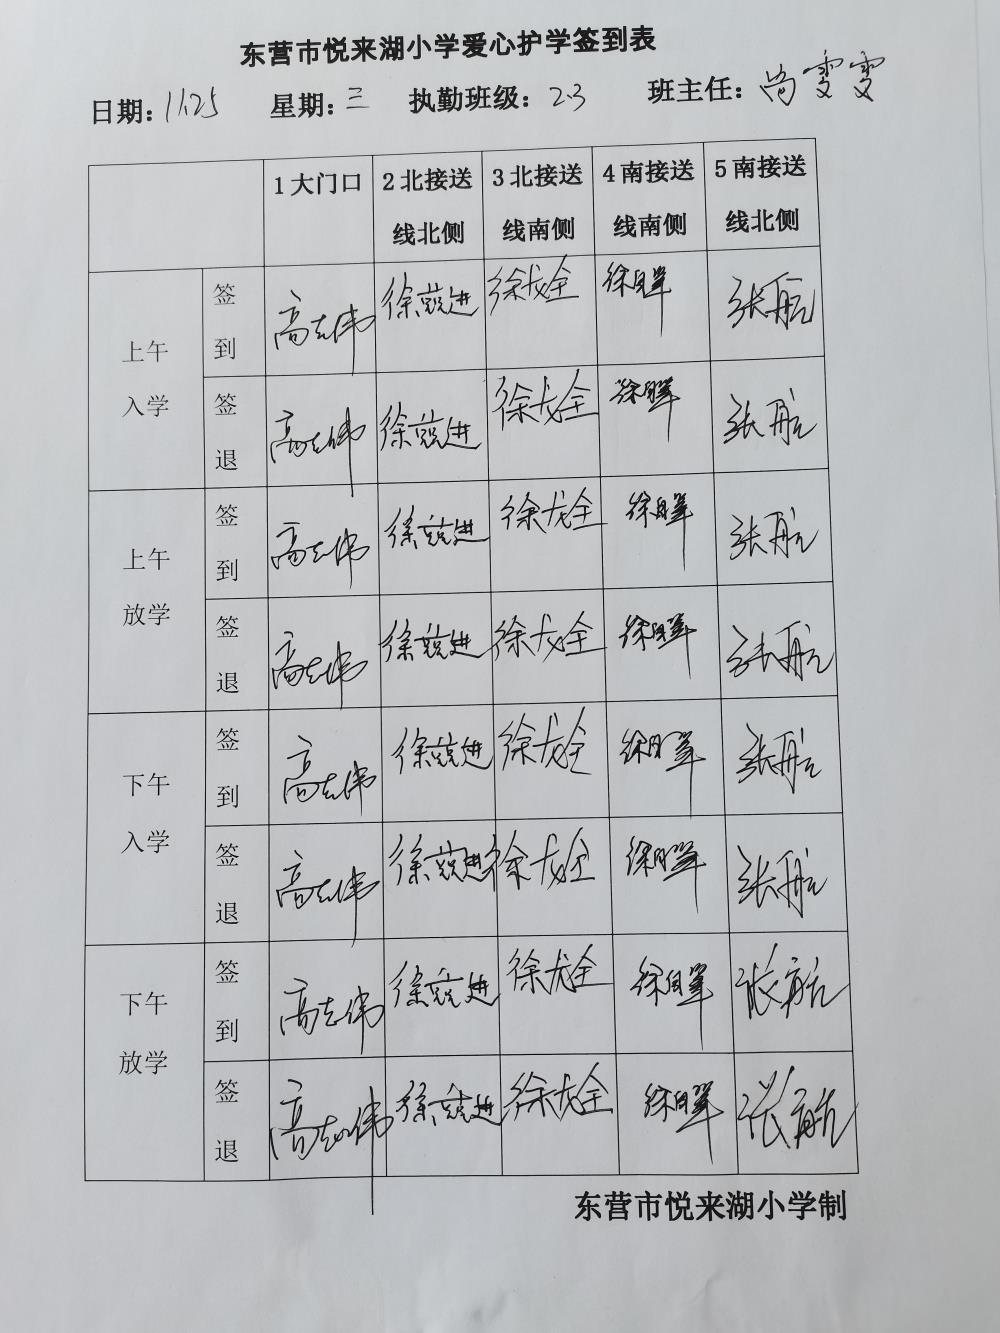 东营市悦来湖小学爱心护学签到表
日期：11.25 星期：三 执勤班级：2.3 班主任：尚雯雯
1大门口 2北接送线北侧 3北接送线南侧 4南接送线南侧 5南接送线北侧
上午入学 签到 高志伟 徐兢进 徐龙全 徐自军 张航
签退 高志伟 徐兢进 徐龙全 徐自军 张航
上午放学 签到 高志伟 徐兢进 徐龙全 徐自军 张航
签退 高志伟 徐兢进 徐龙全 徐自军 张航
下午入学 签到 高志伟 徐兢进 徐龙全 徐自军 张航
签退 高志伟 徐兢进 徐龙全 徐自军 张航
下午放学 签到 高志伟 徐兢进 徐龙全 徐自军 张航
签退 高志伟 徐兢进 徐龙全 徐自军 张航
东营市悦来湖小学制